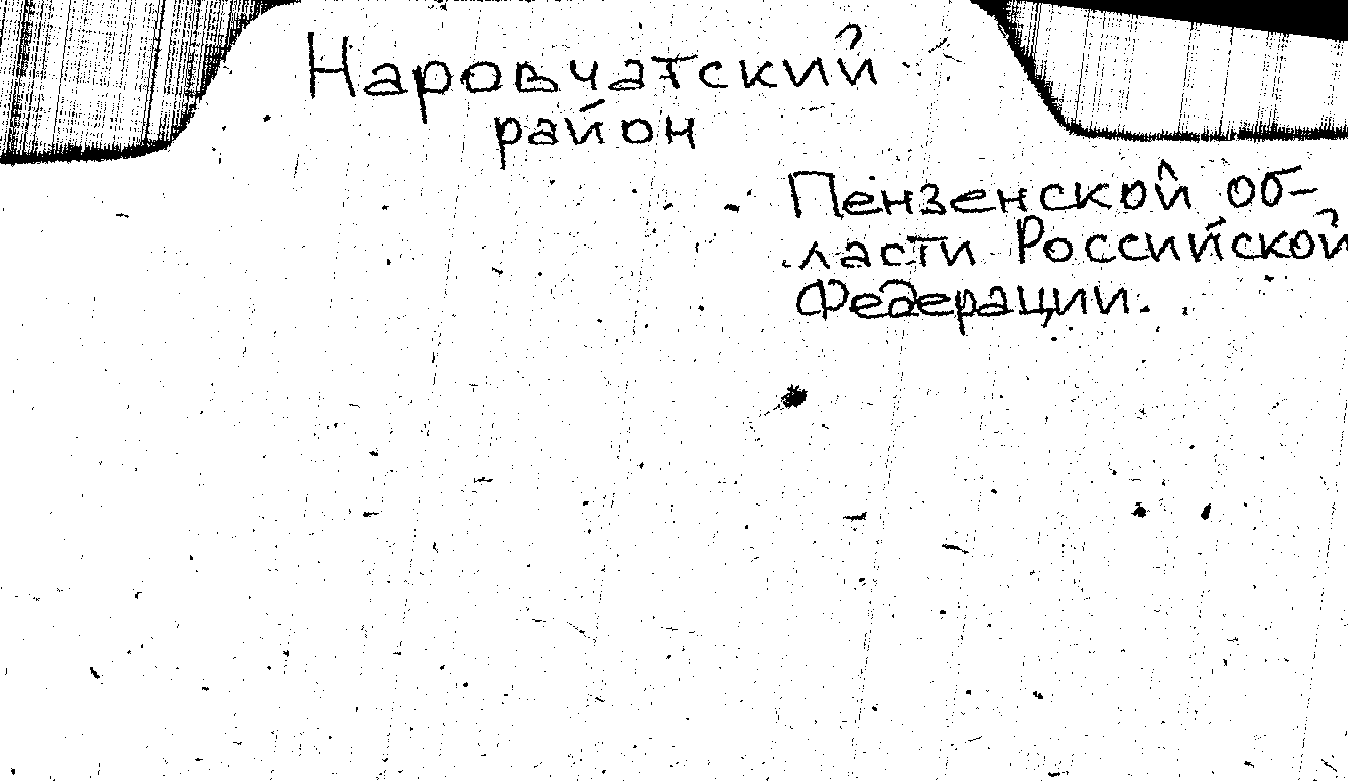 Наровчатский
район
Пензенской об-
ласти Российской
Федерации.